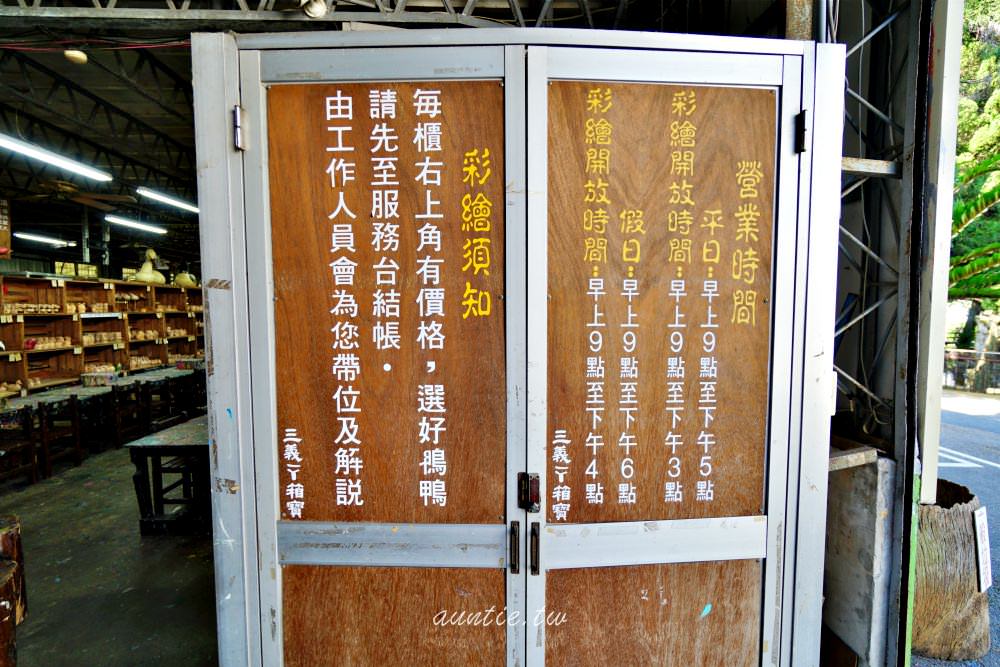 營業時間
平日:早上9點至下午5點
彩繪開放時間:早上9點至下午3點
假日:早上9點至下午6點
彩繪開放時間:早上9點至下午4點
三義ㄚ箱寶
彩繪須知
每櫃右上角有價格,選好鴨鴨
請先至服務台結帳。
由工作人員會為您帶位及解說
三義ㄚ箱寶
auntie.tw